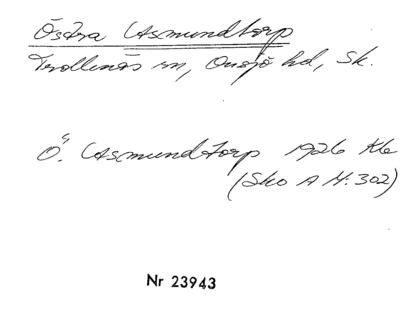 Östra Asmundtorp
Trollenäs sn, Onsjö hd, Sk.
Ö. Asmundtorp 1926 Kb
(Sko A 4:302)
Nr 23943